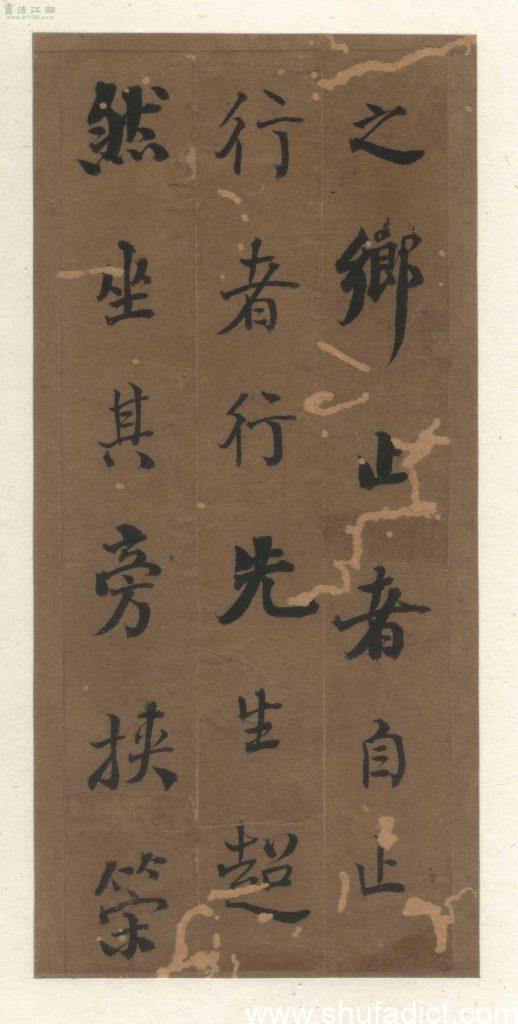 之鄉止者自止
行者行先生超
然坐其旁挾筞
書法江湖
www.sf108.com
www.shufadict.com